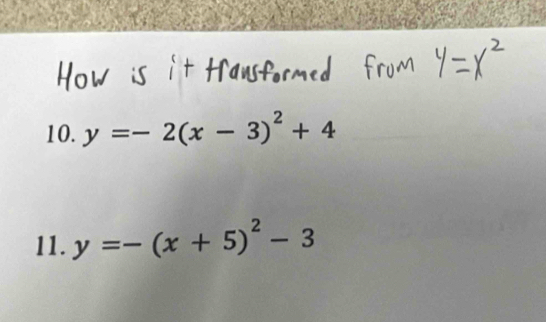 How is it transformed from y=x²
10. y =− 2(x − 3)² + 4
11. y =− (x + 5)² − 3